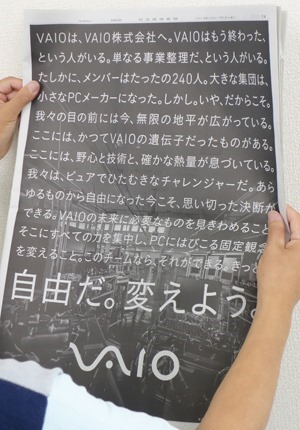 VAIOは、VAIO株式会社へ。VAIOはもう終わった、
という人がいる。単なる事業整理だ、という人がいる。
たしかに、メンバーはたったの240人。大きな集団は、
小さなPCメーカーになった。しかし。いや、だからこそ。
我々の目の前には今、無限の地平が広がっている。
ここには、かつてVAIOの遺伝子だったものがある。
ここには、野心と技術と、確かな熱量が息づいている。
我々は、ピュアでひたむきなチャレンジャーだ。あら
ゆるものから自由になった今こそ、思い切った決断が
できる。VAIOの未来に必要なものを見きわめること。
そこにすべての力を集中し、PCにはびこる固定観念
を変えること。このチームなら、それができる。きっと
自由だ。変えよう。
VAIO